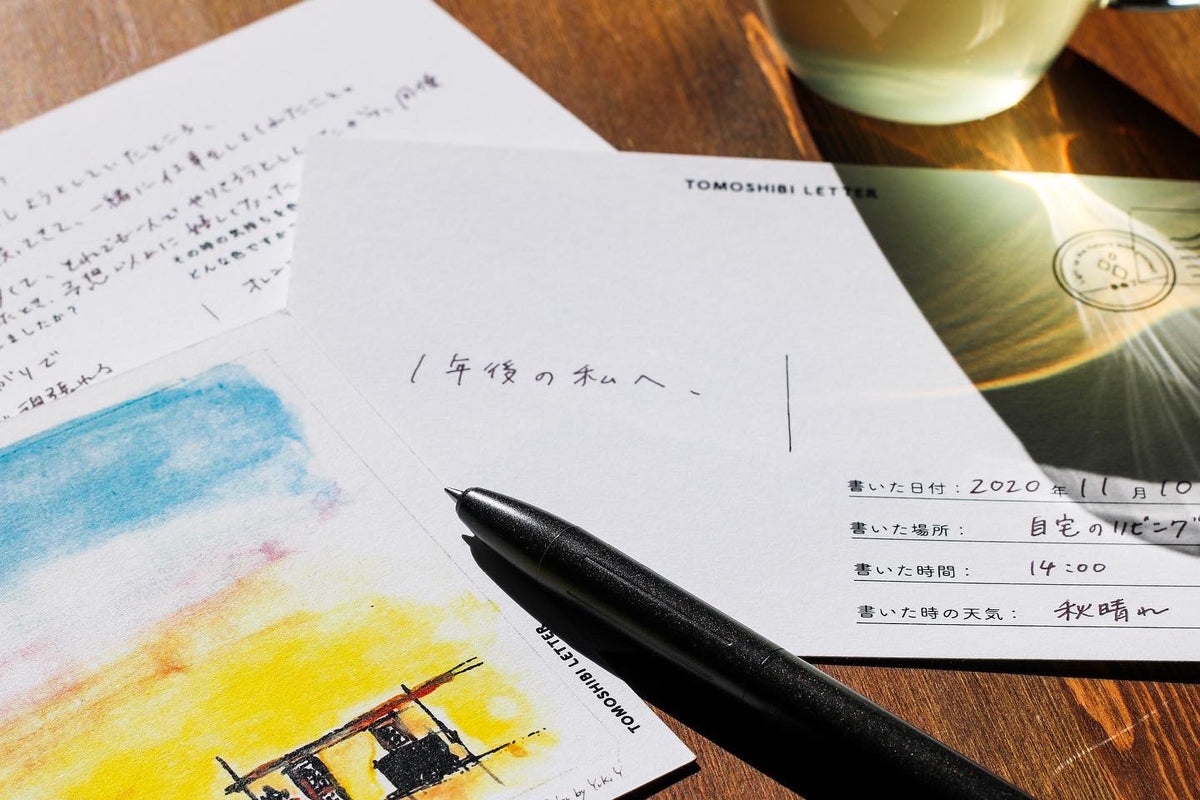 TOMOSHIBI LETTER
1年後の私へ、
書いた日付：2020年11月10
書いた場所：自宅のリビング
書いた時間：14:00
書いた時の天気：秋晴れ
しようとしていたところ、
一緒に仕事をしてくれたこと。
それでも一人でやりきろうとし
予想以上に嬉しくなった
その時の気持ちを
どんな色ですか
オレン
ましたか？
頑張れる
TOMOSHIBI LETTER
by Yuki Y